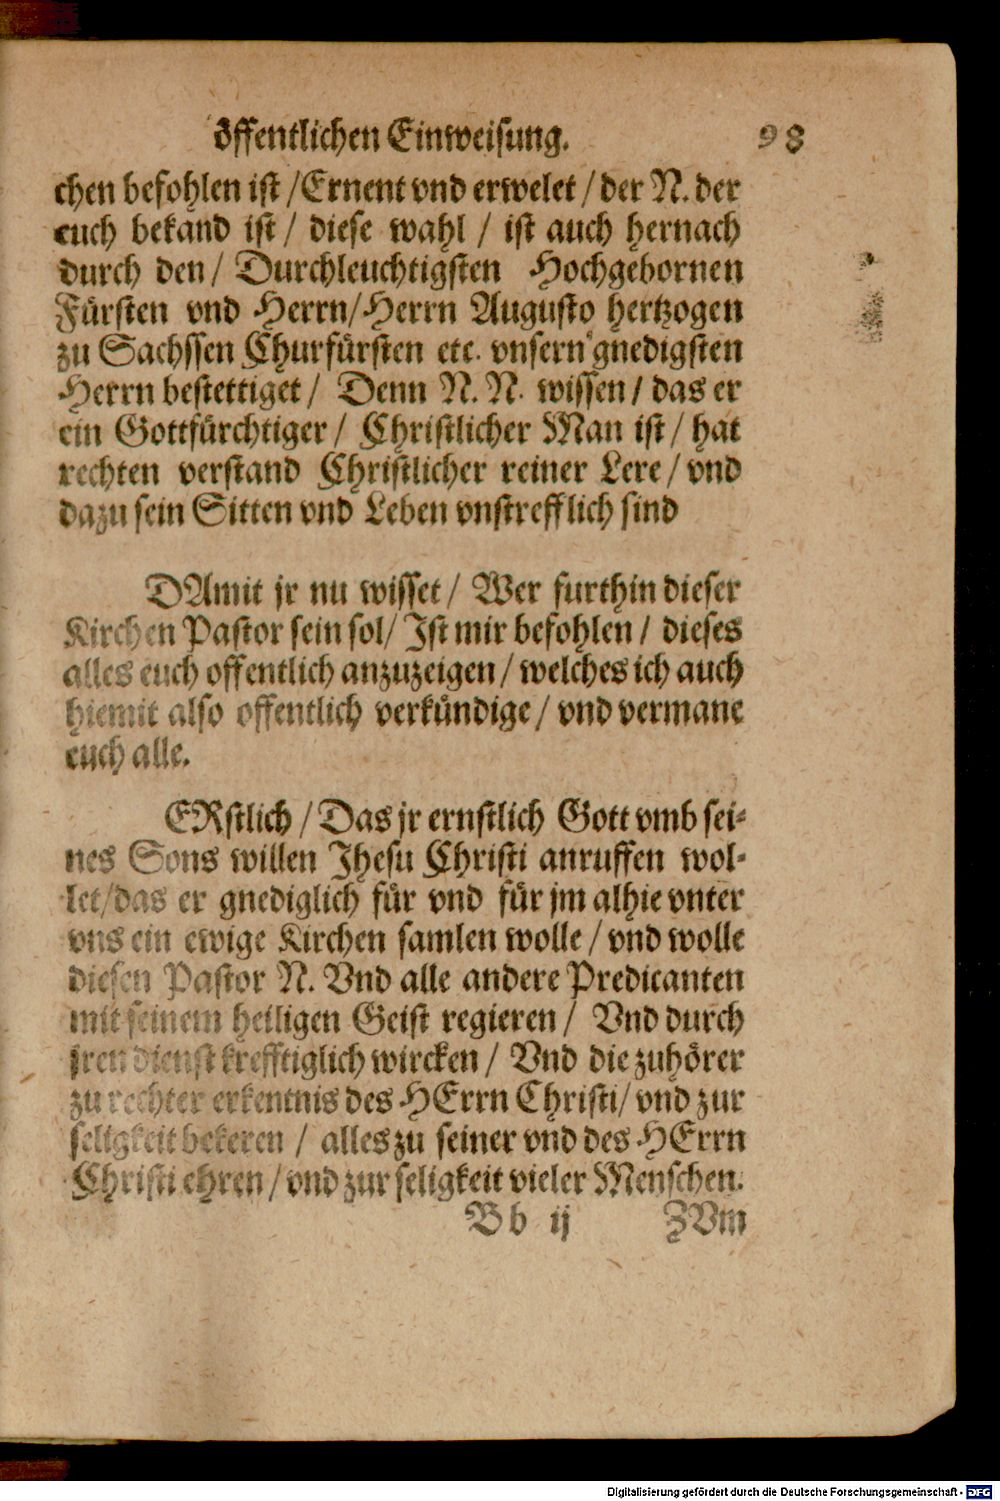 öffentlichen Einweisung. 98
chen befohlen ist / Ernent vnd erwelet / der N. der
euch bekand ist / diese wahl / ist auch hernach
durch den / Durchleuchtigsten Hochgebornen
Fürsten vnd Herrn / Herrn Augusto hertzogen
zu Sachssen Churfürsten etc. vnsern gnedigsten
Herrn bestettiget / Denn N. N. wissen / das er
ein Gottfürchtiger / Christlicher Man ist / hat
rechten verstand Christlicher reiner Lere / vnd
dazu sein Sitten vnd Leben vnstrefflich sind
DAmit jr nu wisset / Wer furthin dieser
Kirchen Pastor sein sol / Ist mir befohlen / dieses
alles euch offentlich anzuzeigen / welches ich auch
hiemit also offentlich verkündige / vnd vermane
euch alle.
ERstlich / Das jr ernstlich Gott vmb sei-
nes Sons willen Jhesu Christi anruffen wol-
let / das er gnediglich für vnd für jm alhie vnter
vns ein ewige Kirchen samlen wolle / vnd wolle
diesen Pastor N. Vnd alle andere Predicanten
mit seinem heiligen Geist regieren / Vnd durch
jren dienst krefftiglich wircken / Vnd die zuhörer
zu rechter erkentnis des HErrn Christi / vnd zur
seligkeit bekeren / alles zu seiner vnd des HErrn
Christi ehren / vnd zur seligkeit vieler Menschen.
Bb ij ZVm
Digitalisierung gefördert durch die Deutsche Forschungsgemeinschaft - DFG